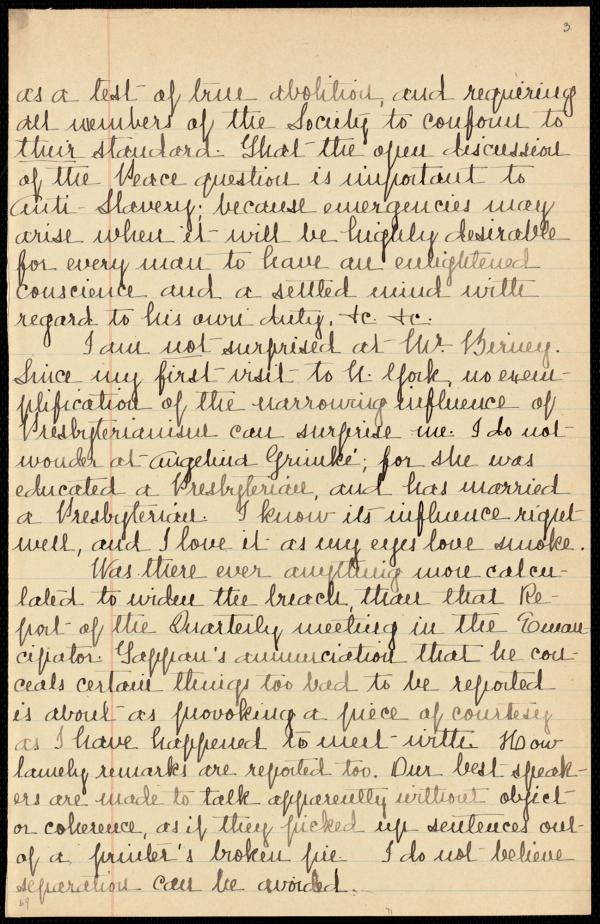 3
as a test of true abolition, and requiring
all members of the Society to conform to
their standard. That the open discussion
of the Peace question is important to
Anti-Slavery; because emergencies may
arise when it will be highly desirable
for every man to have an enlightened
conscience and a settled mind with
regard to his own duty, &c. &c.
I am not surprised at Mr. Birney.
Since my first visit to N. York, no exem-
plification of the narrowing influence of
Presbyterianism can surprise me. I do not
wonder at Angelina Grimké; for she was
educated a Presbyterian, and has married
a Presbyterian. I know its influence right
well, and I love it as my eyes love smoke.
Was there ever anything more calcu-
lated to widen the breach, than that Re-
port of the Quarterly meeting in the Eman-
cipator. Tappan's annunciation that he con-
ceals certain things too bad to be reported
is about as provoking a piece of courtesy
as I have happened to meet with. How
lamely remarks are reported too. Our best speak-
ers are made to talk apparently without object
or coherence, as if they picked up sentences out
of a printer's broken pie. I do not believe
separation can be avoided.
69